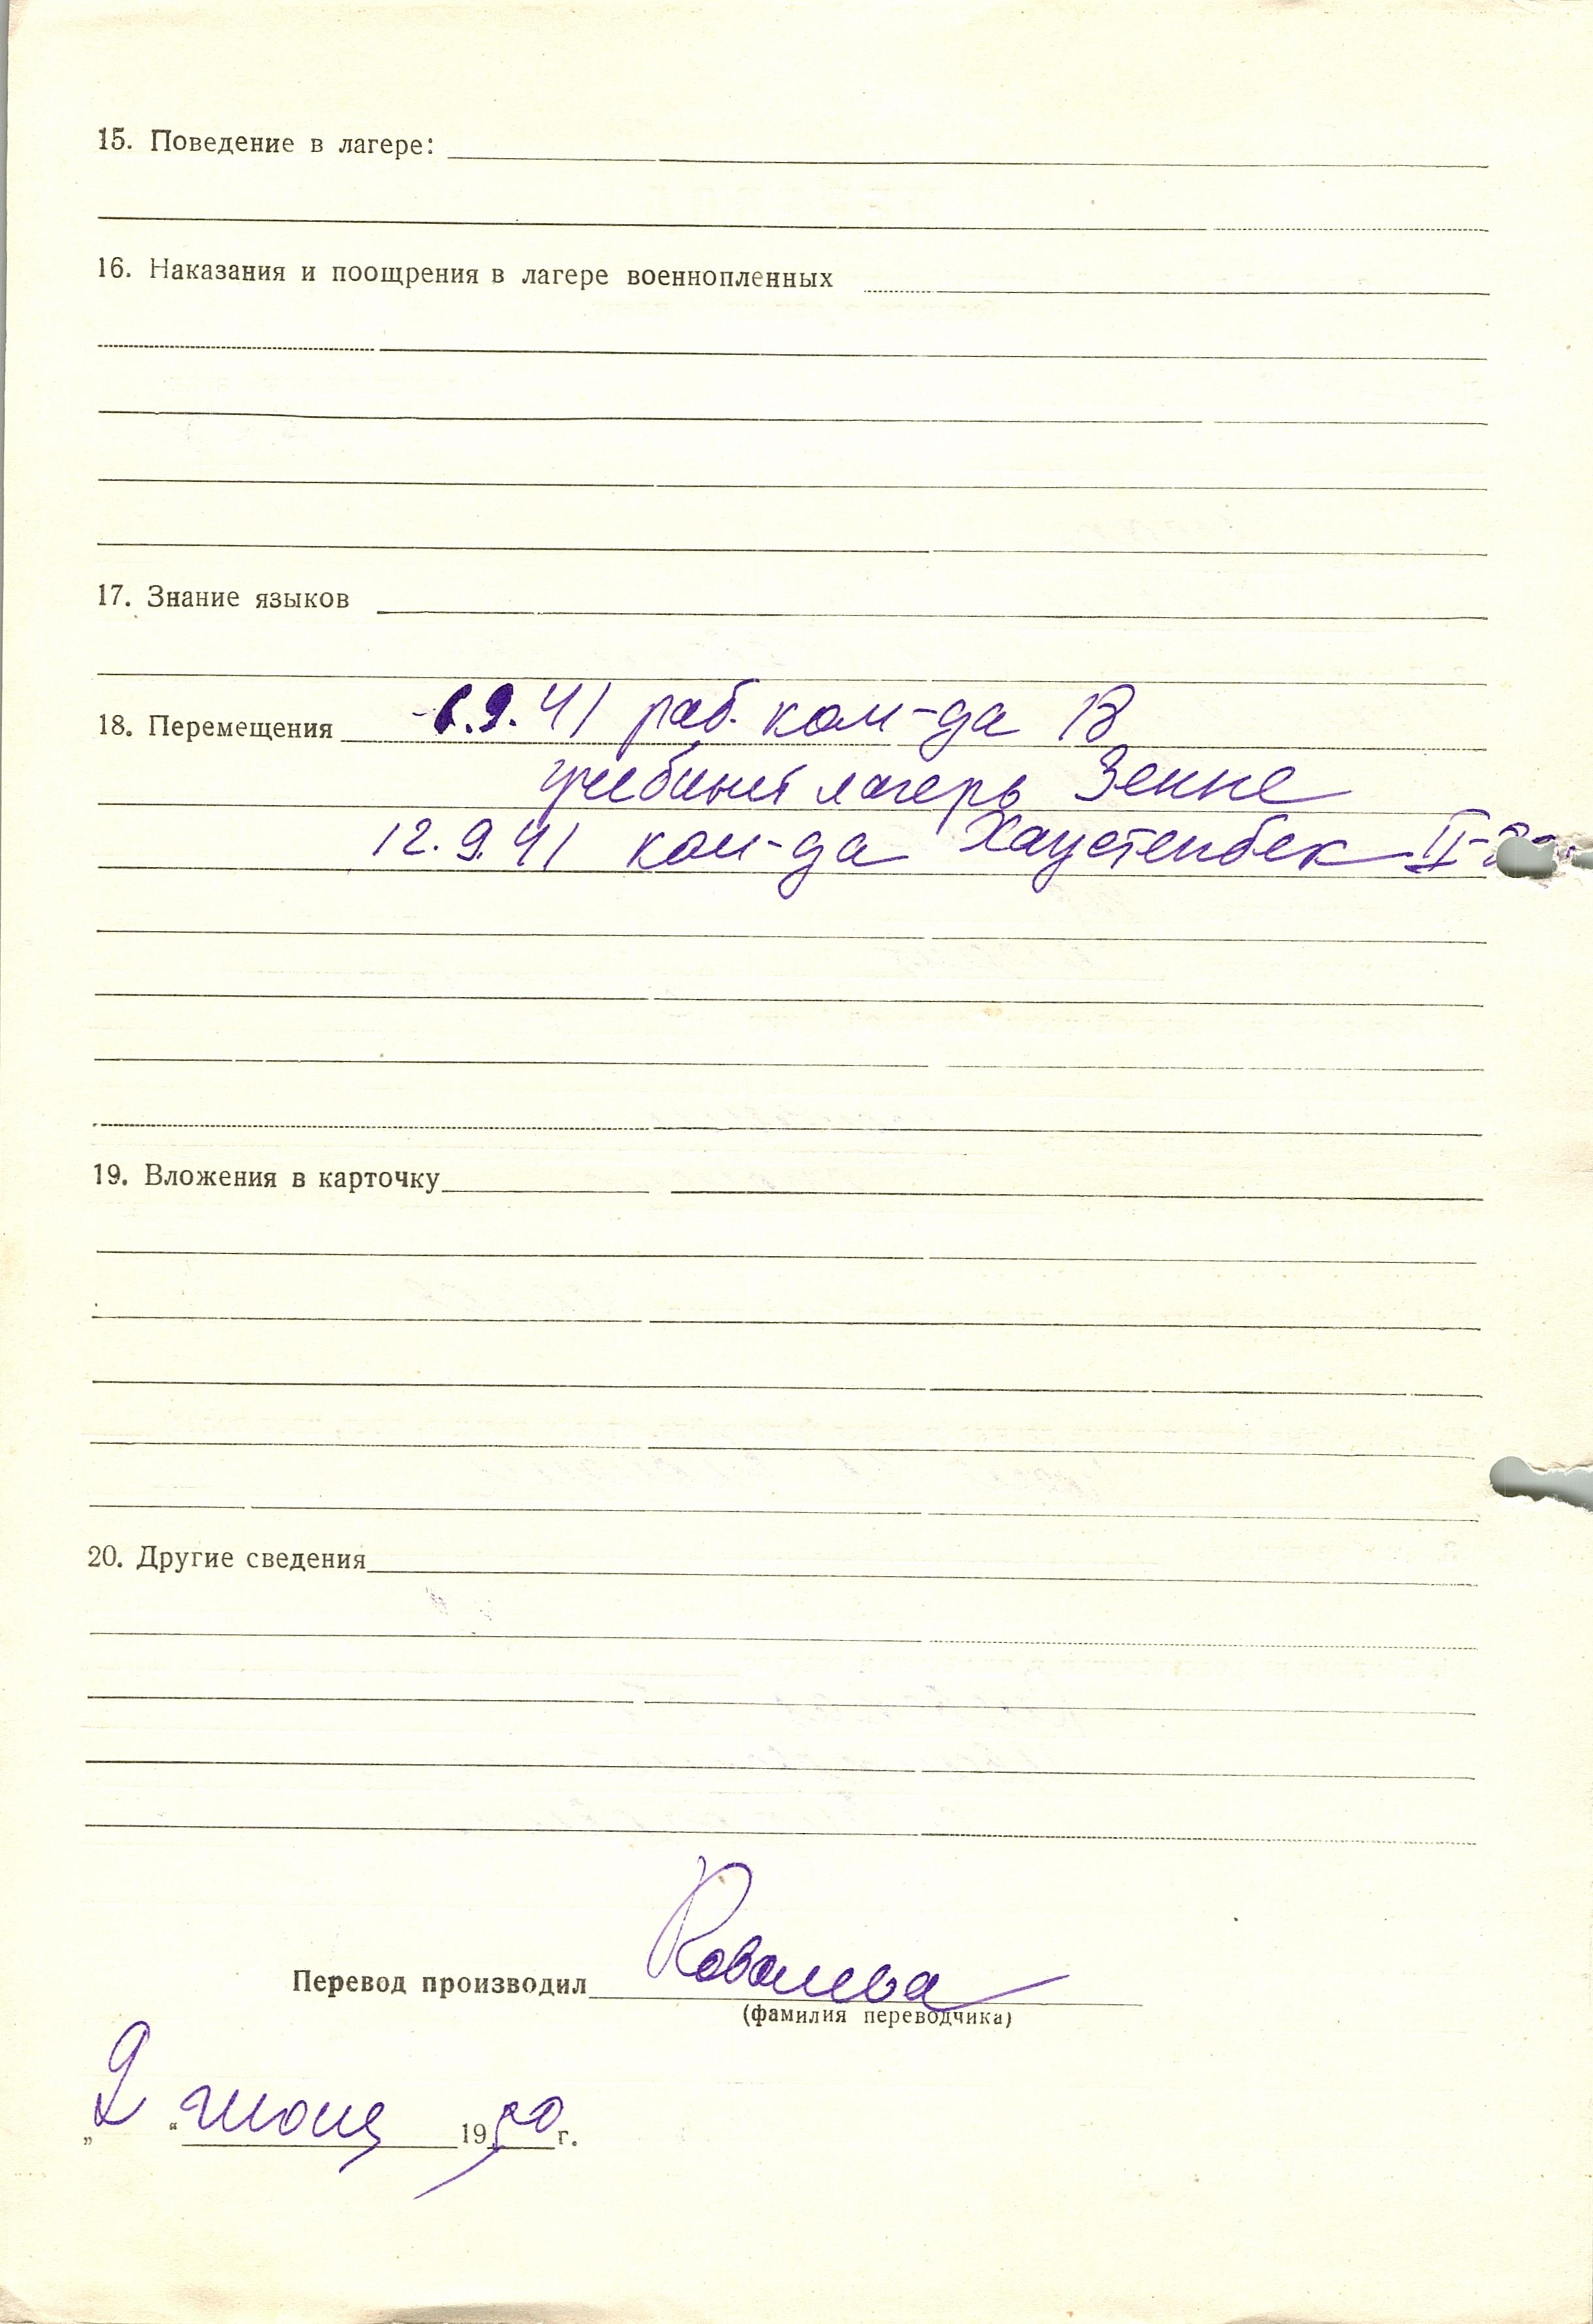 15. Поведение в лагере:
16. Наказания и поощрения в лагере военнопленных
17. Знание языков
18. Перемещения 9.41 раб. ком-да
учебный лагерь Зенне
12.9.41 ком-да Хаустенбек II-
19. Вложения в карточку
20. Другие сведения
Перевод производил Ковалева
(фамилия переводчика)
„2“ июня 1950 г.